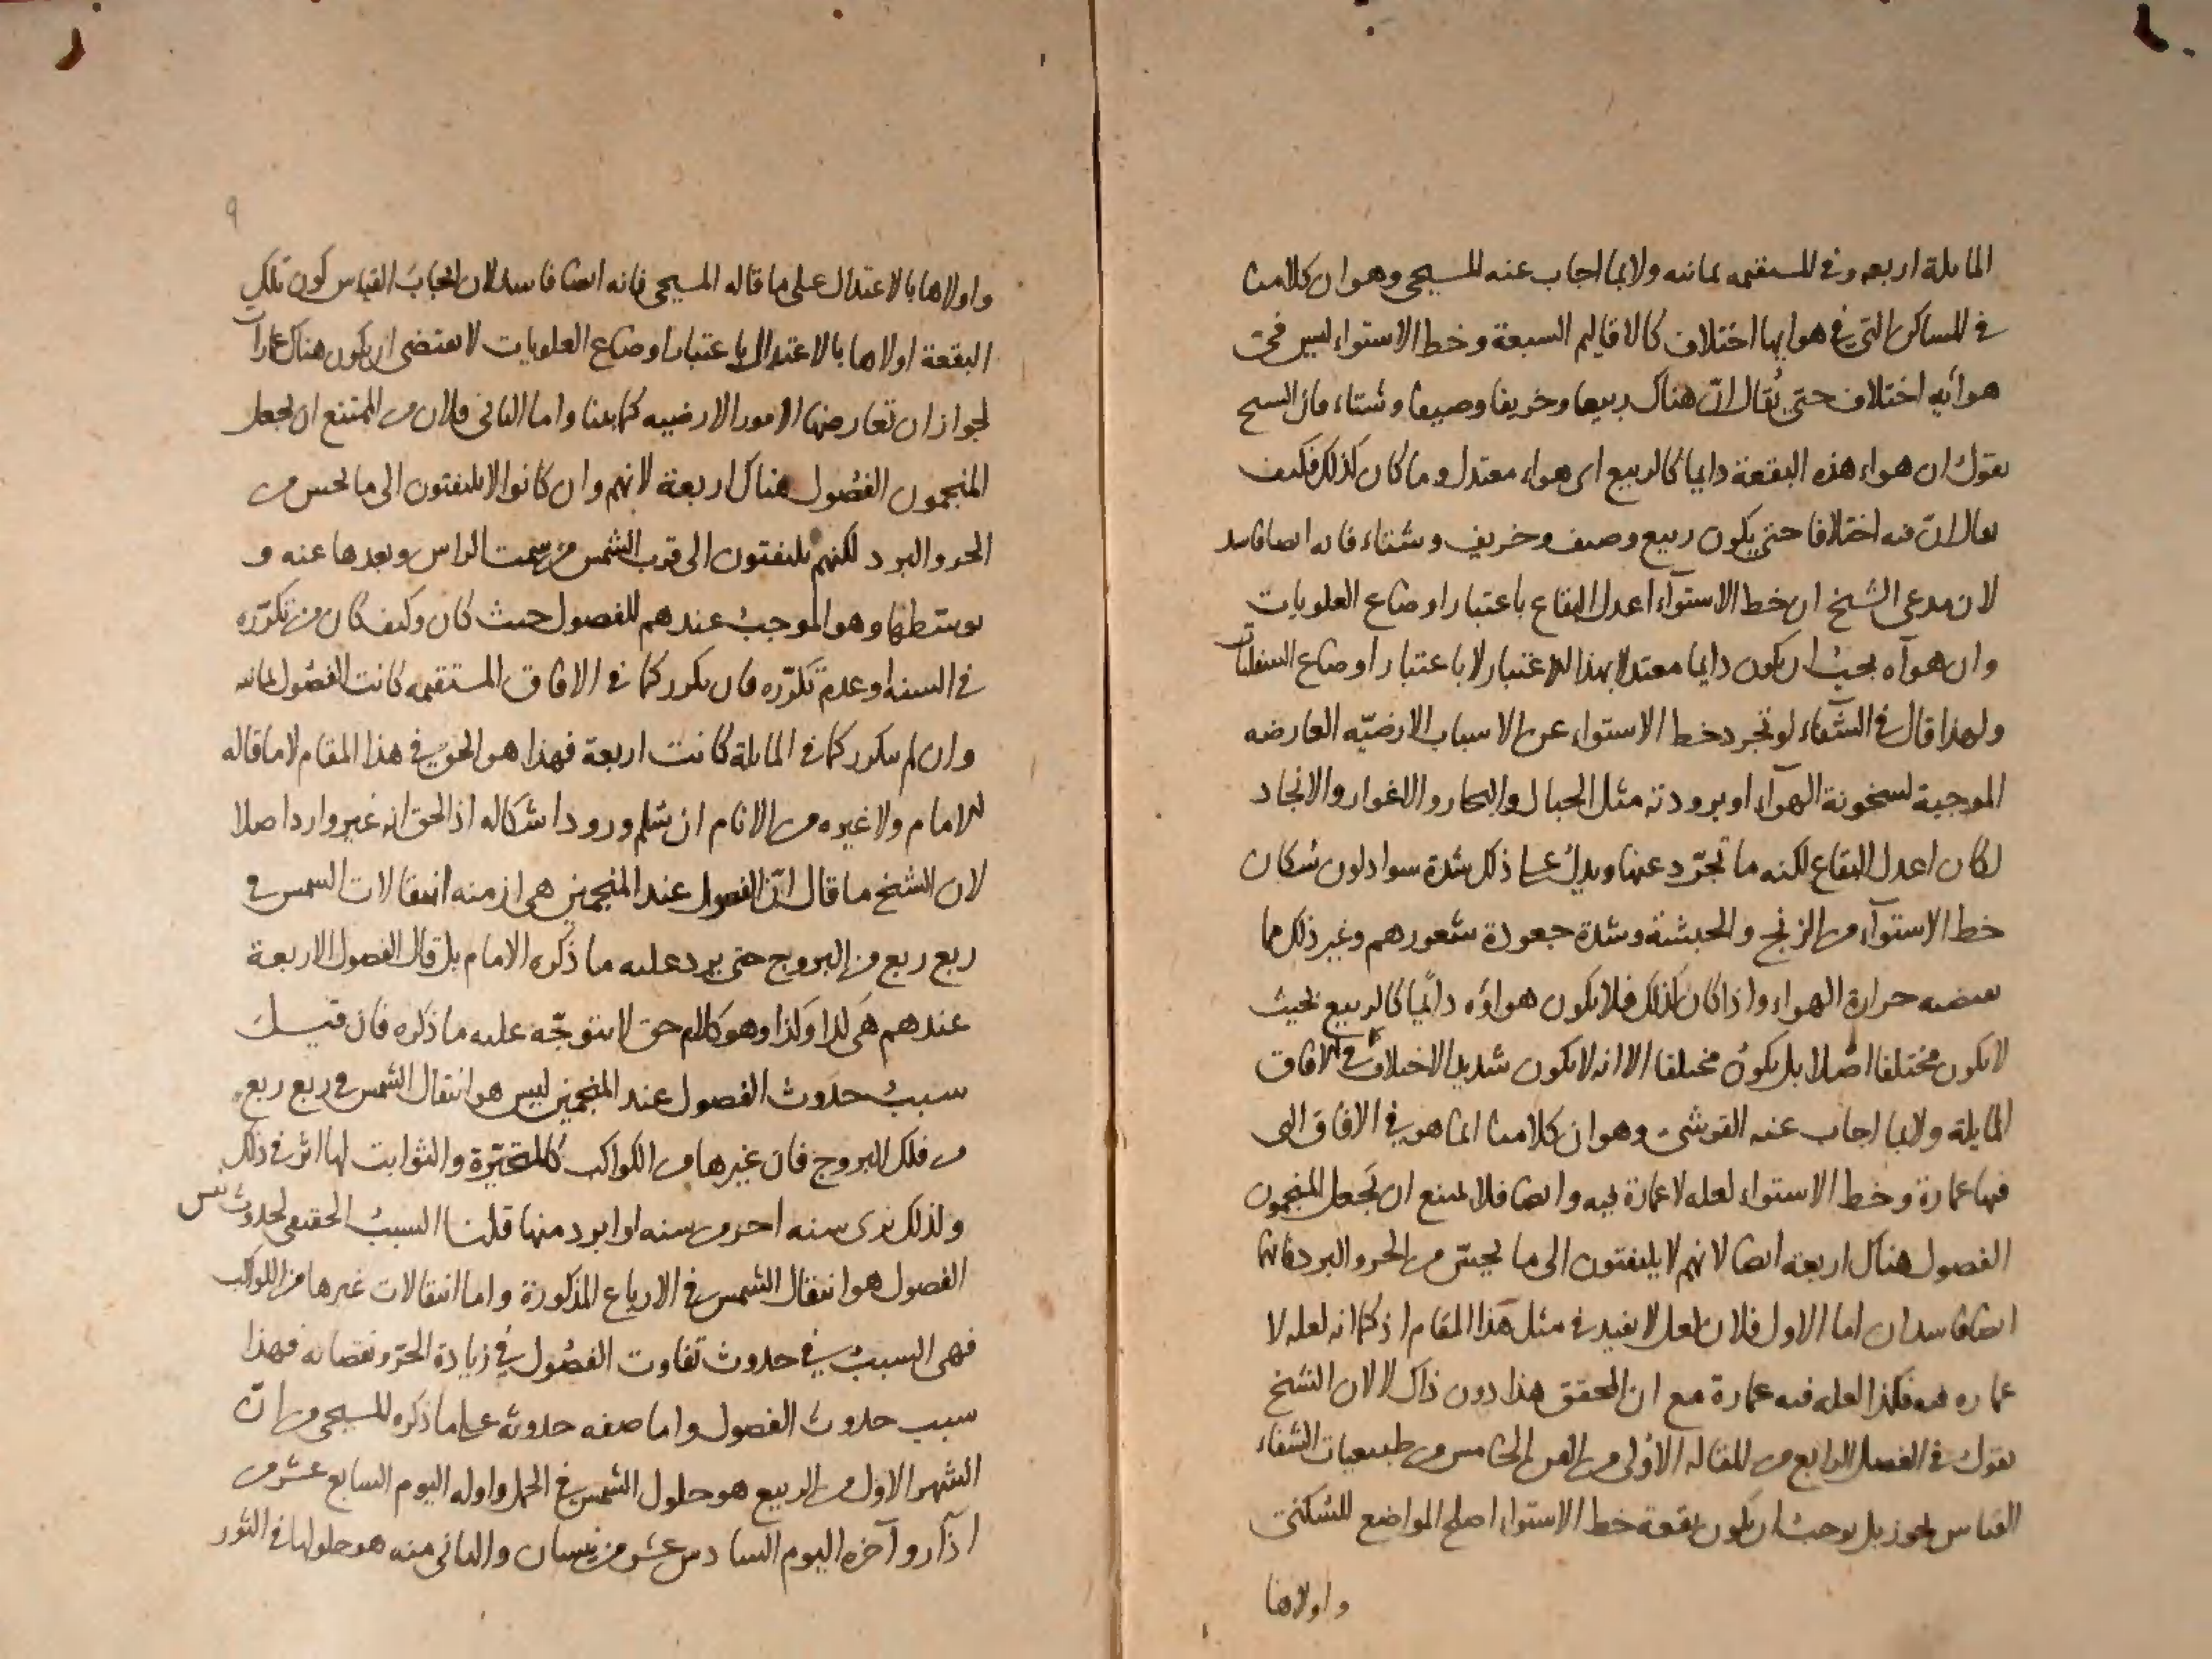 المايلة اربعه وفي المستقيمه ثمانيه ولا بما اجاب عنه المسيحي وهو ان كلامنا
في المساكن التي في هوايها اختلاف كالاقاليم السبعة وخط الاستواء ليس في
هوائه اختلاف حتى يُقال انّ هناك ربيعا وخريفا وصيفا وشتاء فان الشيخ
يقول ان هواء هذه البقعة دايما كالربيع اى هواء معتدل وما كان كذلك فكيف
يقال انّ فيه اختلافا حتى يكون ربيع وصيف وخريف وشتاء فانه ايضا فاسد
لان مدعى الشيخ ان خط الاستوآء اعدل البقاع باعتبار اوضاع العلويات
وان هوآه يجب ان يكون دايما معتدلا بهذا الاعتبار لا باعتبار اوضاع السفليات
ولهذا قال في الشفاء لو تجرد خط الاستواء عن الاسباب الارضيّه العارضه
الموجبة لسخونة الهوآء او برودته مثل الجبال والبحار والاغوار والانجاد
لكان اعدل البقاع لكنه ما تجرّد عنها ويدل على ذلك شدة سواد لون سُكان
خط الاستوآء من الزنج والحبشة وشدة جعودة شعورهم وغير ذلك مما
يقتضيه حرارة الهواء واذا كان كذلك فلا يكون هواؤه دائمًا كالربيع بحيث
لا يكون مختلفا اصلا بل يكون مختلفا الا انه لا يكون شديد الاختلاف كما في الافاق
المايلة ولا بما اجاب عنه القرشى وهو ان كلامنا انما هو في الافاق التى
فيها عمارة وخط الاستواء لعله لا عمارة فيه وايضا فلا يمتنع ان يَجعل المنجمون
الفصول هناك اربعة ايضا لانهم لا يلتفتون الى ما يحسّ من الحر والبرد فانهما
ايضا فاسدان اما الاول فلان لعل لا يفيد في مثل هذا المقام اذ كما انه لعله لا
عماره فيه فكذا لعله فيه عمارة مع ان المحقق هذا دون ذاك لان الشيخ
يقول في الفصل الرابع من المقالة الاولى من الفن الخامس من طبيعيات الشفاء
القياس يجوز بل يوجب ان يكون بقعة خط الاستواء اصلح المواضع للسكنى
واولاها
واولاها بالاعتدال على ما قاله المسيحي فانه ايضا فاسد لان ايجابَ القياس كون تلك
البقعة اولاها بالاعتدال باعتبار اوضاع العلويات لا يقتضى ان يكون هناك عمارات
لجواز ان تعارضها الامور الارضيه كما بينا واما الثانى فلان من الممتنع ان يجعل
المنجمون الفصُول هناك اربعة لانهم وان كانوا لا يلتفتون الى ما يحس من
الحر والبرد لكنهم يلتفتون الى قرب الشمس من سمت الراس وبعدها عنه و
توسّطها وهو الموجبُ عندهم للفصول حيث كان وكيف كان من تكرّره
في السنه او عدم تكرّره فان يكرر كما في الافاق المستقيمه كانت الفصُول ثمانيه
وان لم يتكرر كما في المايلة كانت اربعة فهذا هو الحق في هذا المقام لا ما قاله
الامام ولا غيره من الانام ان سُلم ورود اشكاله اذ الحق انه غير وارد اصلا
لان الشيخ ما قال انّ الفصول عند المنجمين هى ازمنه انتقالات الشمس في
ربع ربع من البروج حتى يرد عليه ما ذكره الامام بل قال الفصول الاربعة
عندهم هى كذا وكذا وهو كلام حق لا يتوجّه عليه ما ذكره فان قيل
سببُ حدوث الفصول عند المنجمين ليس هو انتقال الشمس في ربع ربع
من فلك البروج فان غيرها من الكواكب كالمتحيّرة والثوابت لها اثر في ذلك
ولذلك نرى سنه احر من سنه او ابرد منها قلنا السببُ الحقيقى لحدوث نفس
الفصول هو انتقال الشمس في الارباع المذكورة واما انتقالات غيرها من الكواكب
فهى السببُ في حدوث تفاوت الفصُول في زيادة الحرّ ونقصانه فهذا
سبب حدوث الفصول واما صفه حدوثه على ما ذكره المسيحي من انّ
الشهر الاول من الربيع هو حلول الشمس في الحمل واوله اليوم السابع عشر من
اذآر وآخره اليوم السادس عشر من نيسان والثانى منه هو حلولها في الثور